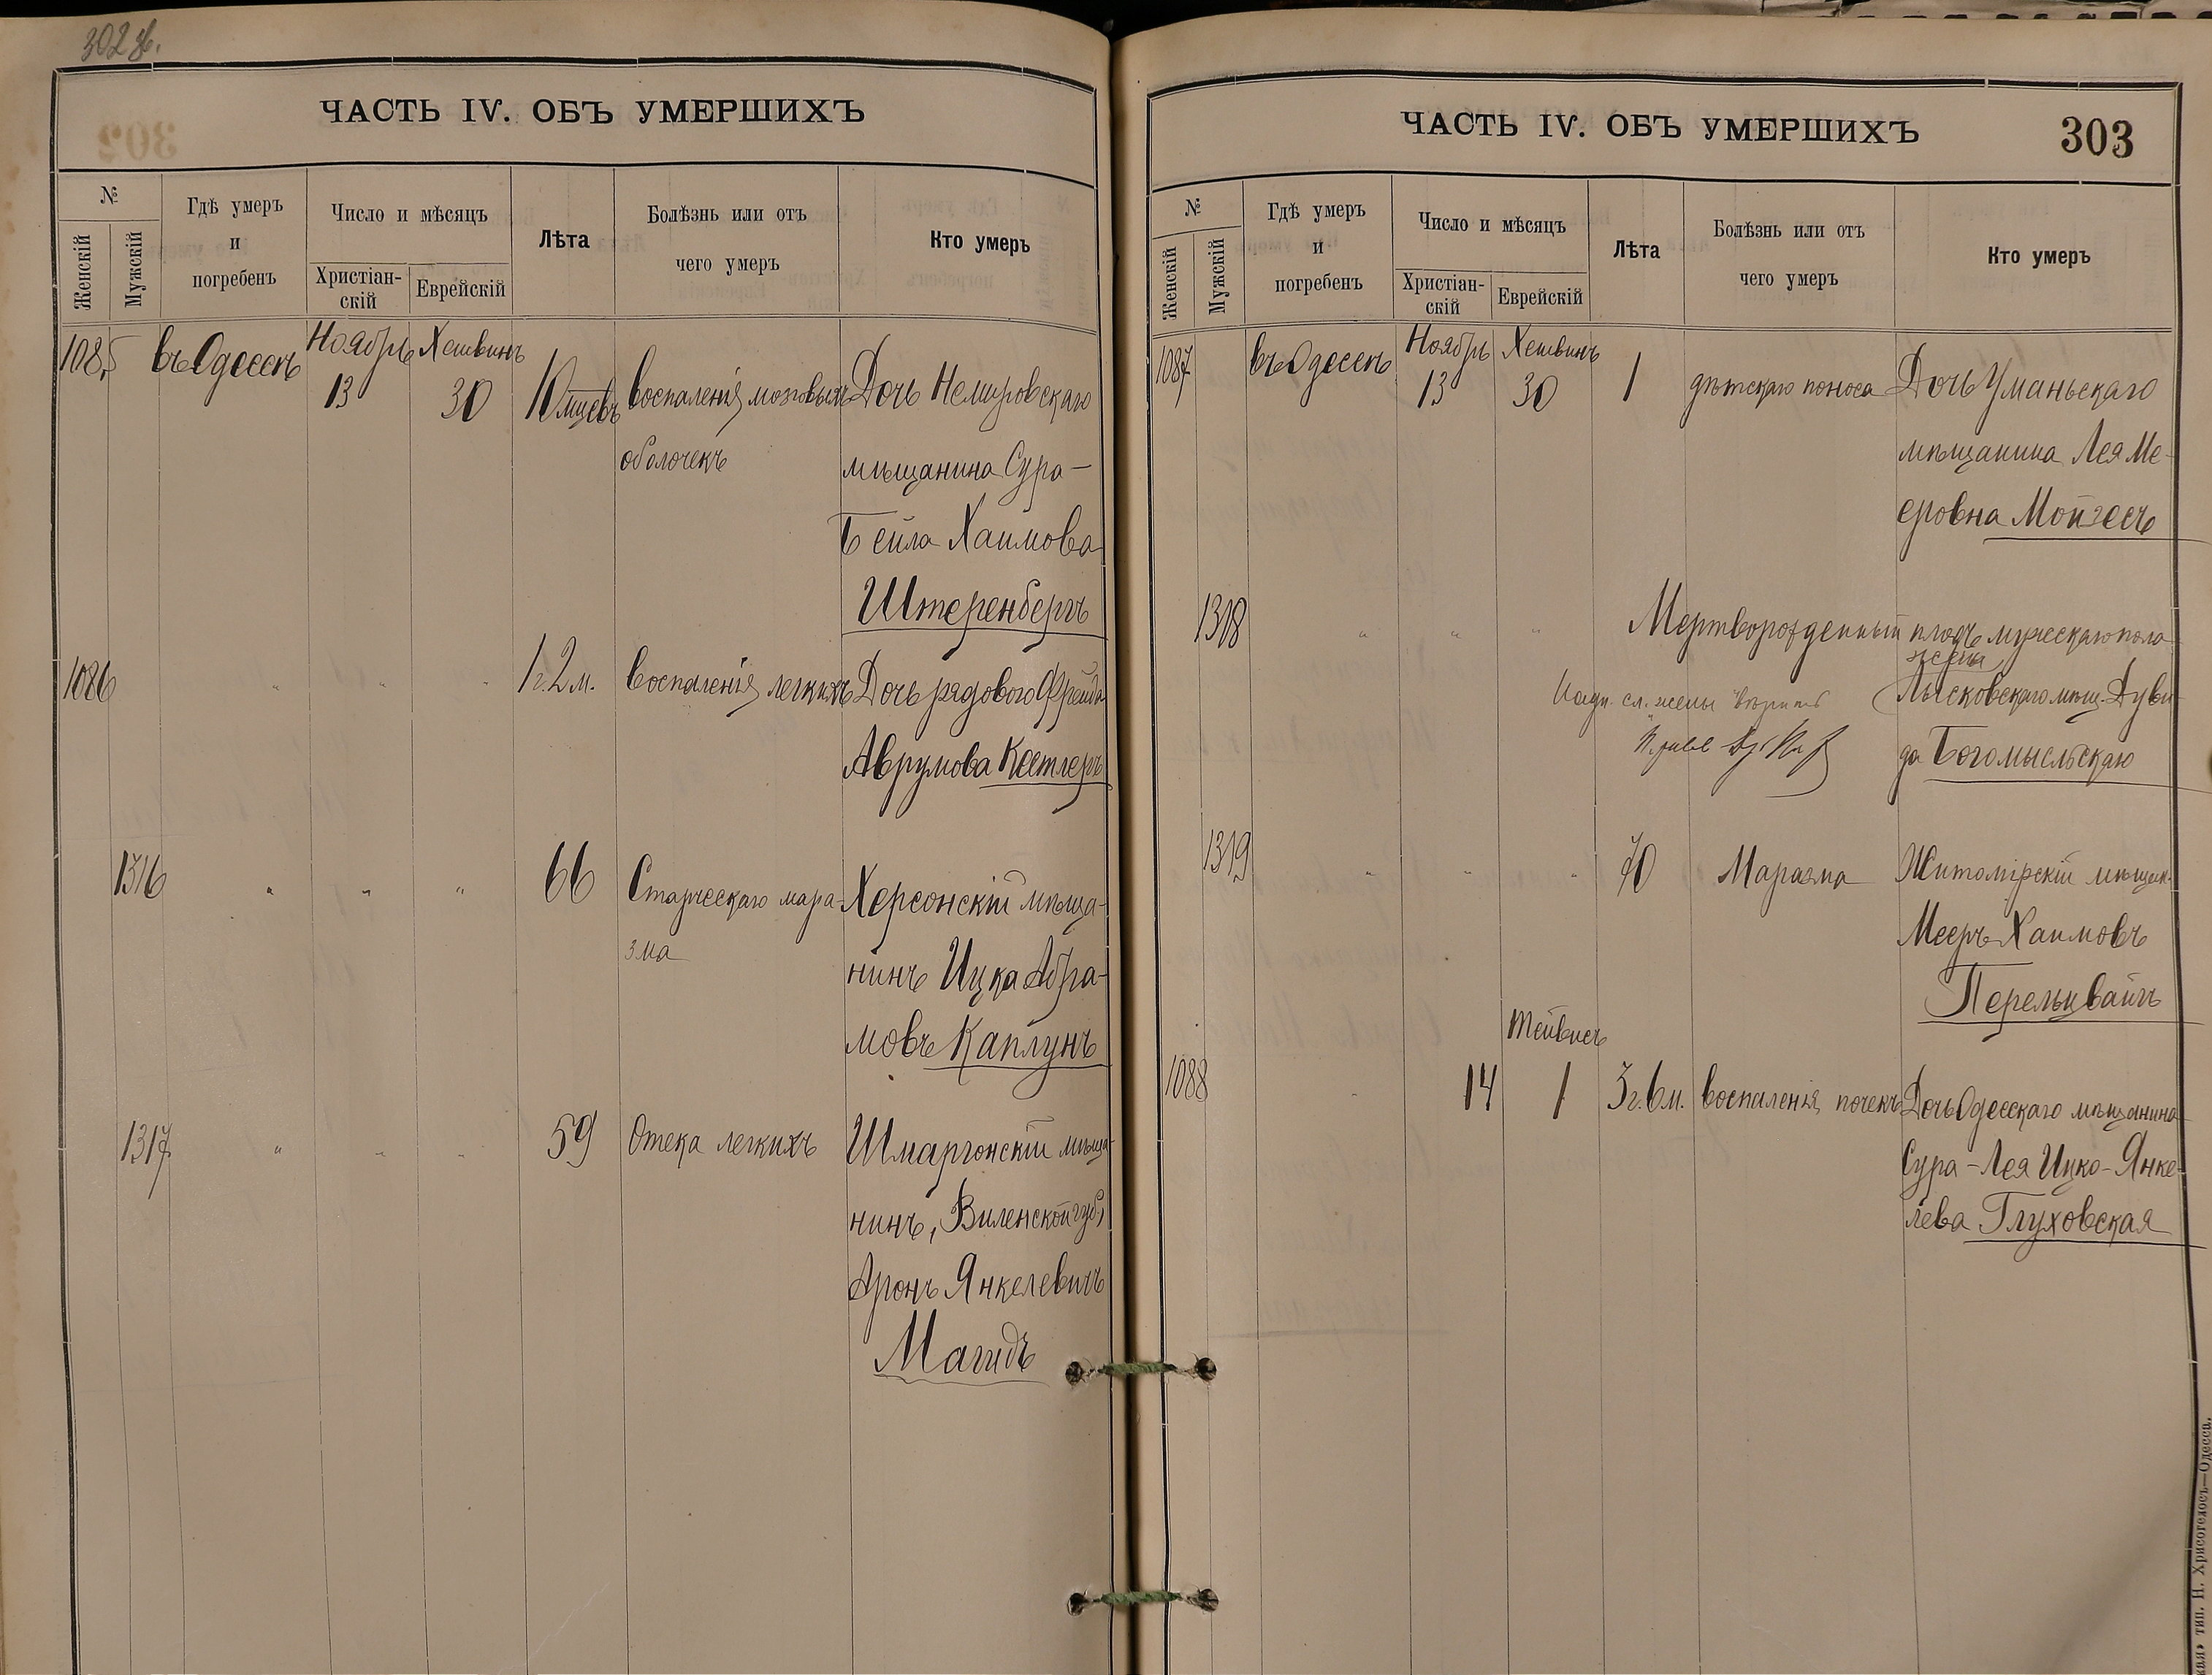 302 об.
ЧАСТЬ IV. ОБЪ УМЕРШИХЪ
№
Женскій
Мужскій
Гдѣ умеръ
и
погребенъ
Число и мѣсяцъ
Христіан-
скій
Еврейскій
Лѣта
Болѣзнь или отъ
чего умеръ
Кто умеръ
1085 въ Одессѣ Ноябрь 13 Хешвинъ 30 10 мцевъ воспаленія мозговыхъ Дочь Немировскаго
оболочекъ мѣщанина Сура-
Бейла Хаимова
Штеренбергъ
1086 " " " 1 г. 2 м. воспаленія легкихъ Дочь рядового Фрейда
Аврумова Кестлеръ
1316 " " " 66 Старческаго мара- Херсонскій мѣща-
зма нинъ Ицка Абра-
мовъ Каплунъ
1317 " " " 59 Отека легкихъ Шмаргонскій мѣща-
нинъ, Виленской губ.,
Аронъ Янкелевичъ
Магидъ
ЧАСТЬ IV. ОБЪ УМЕРШИХЪ
303
№
Женскій
Мужскій
Гдѣ умеръ
и
погребенъ
Число и мѣсяцъ
Христіан-
скій
Еврейскій
Лѣта
Болѣзнь или отъ
чего умеръ
Кто умеръ
1087 въ Одессѣ Ноябрь 13 Хешвинъ 30 1 дѣтскаго поноса Дочь Уманьскаго
мѣщанина Лея Ме-
еровна Мойзесъ
1318 " " " Мертворожденный плодъ мужескаго пола
жены
Надп. сл. жены вѣрить Лысковскаго мѣщ. Дуви-
да Богомысльскаго
1319 " " " 70 Маразма Житомірскій мѣщан.
Мееръ Хаимовъ
Перельцвайгъ
Тейвисъ
1088 " 14 1 3 г. 6 м. воспаленія почекъ Дочь Одесскаго мѣщанина
Сура-Лея Ицко-Янке-
лева Глуховская
тип. Н. Хрисогелосъ—Одесса.